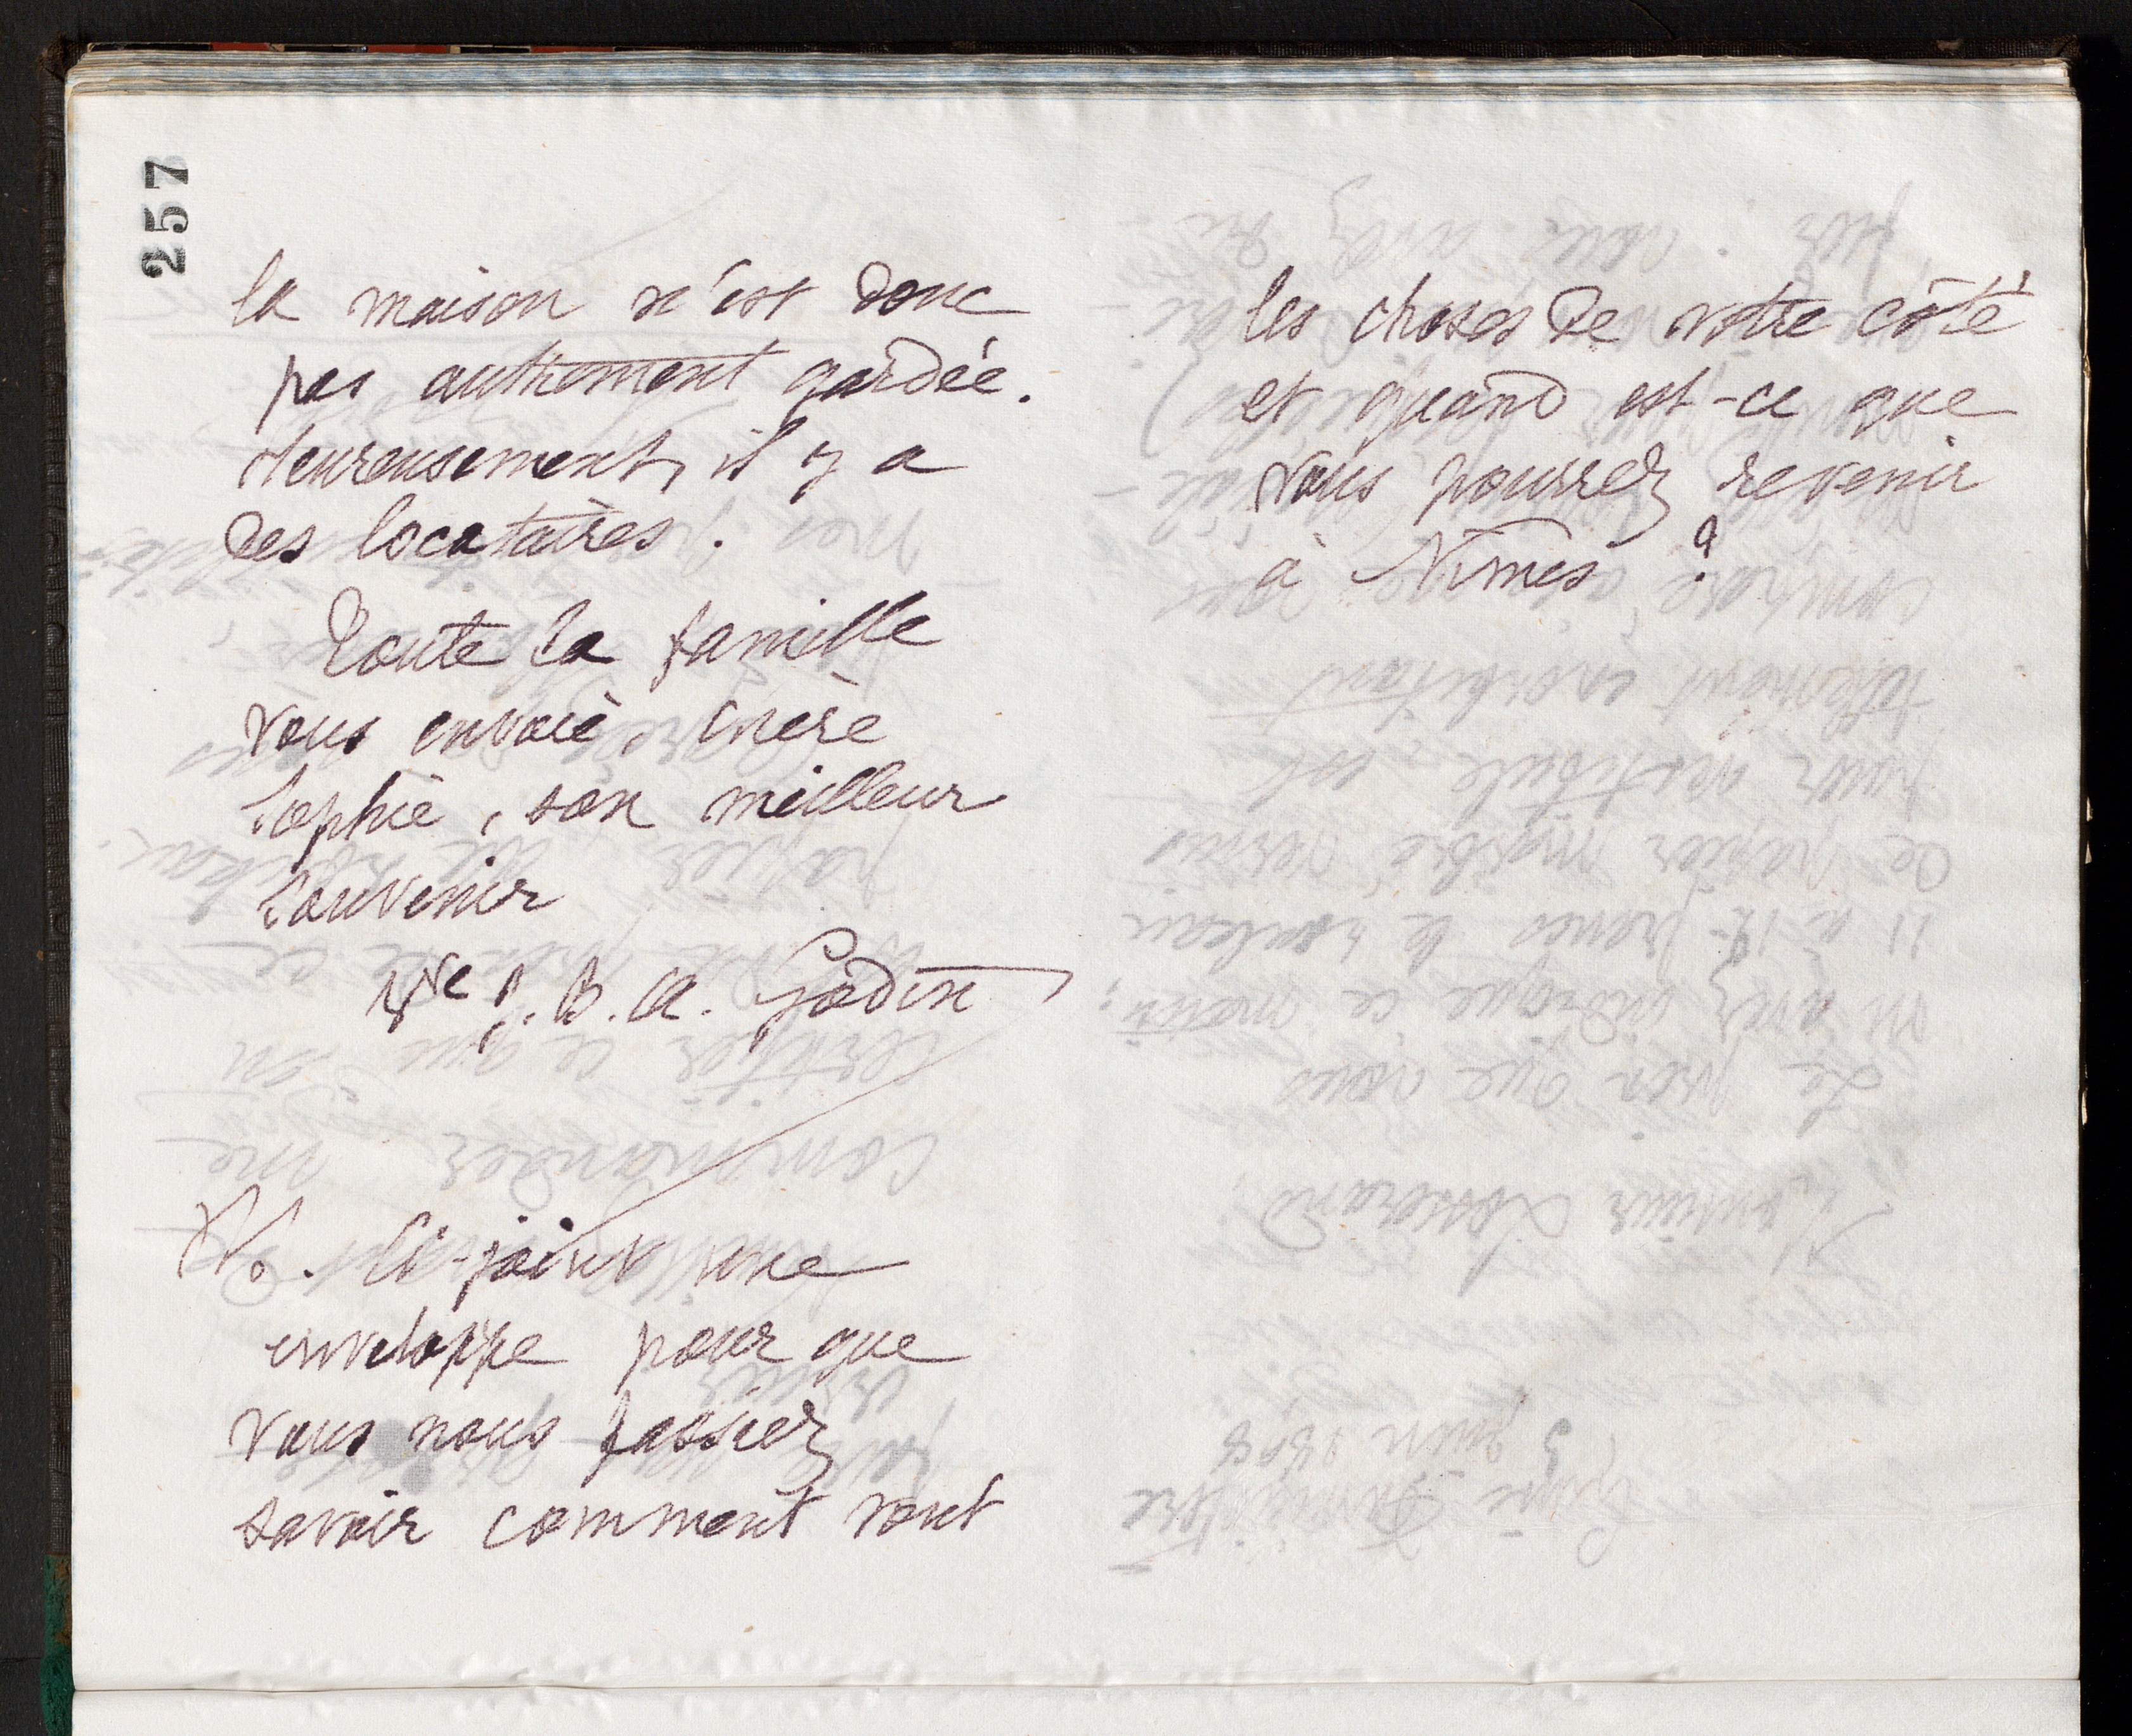 257
la maison n'est donc
pas autrement gardée.
Heureusement, il y a
des locataires.
Toute la famille
vous envoie, chère
Sophie, son meilleur
souvenir
Vve J. B. A. Godin
P.S. Ci-joint une
enveloppe pour que
vous nous fassiez
savoir comment vont
les choses de votre côté
et quand est-ce que
vous pourrez revenir
à Nîmes ?